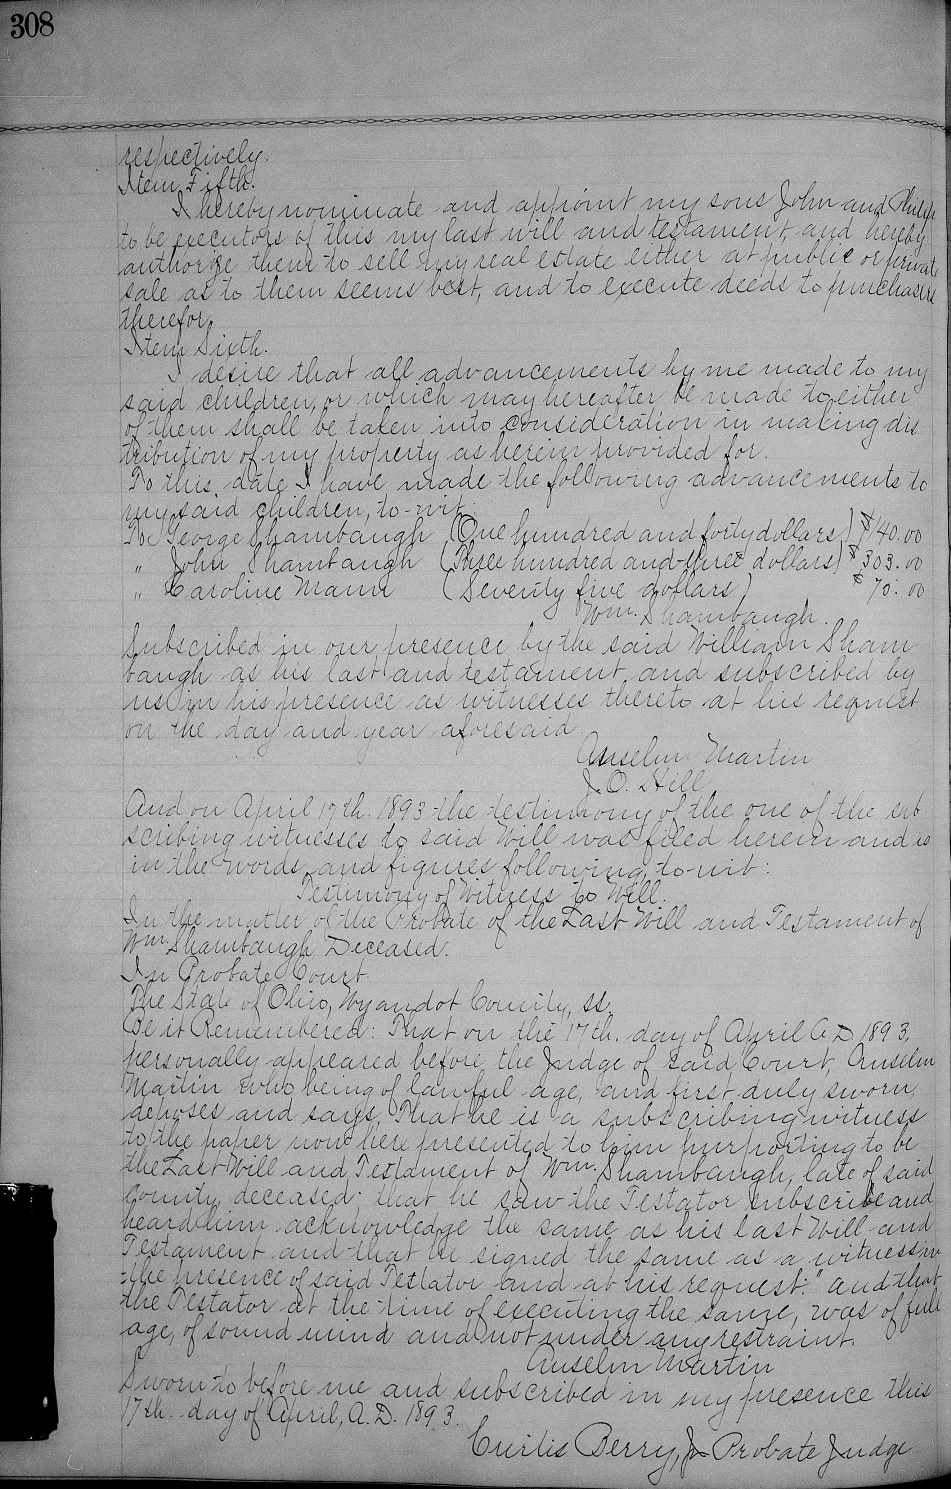 308
respectively.
Item Fifth.
I hereby nominate and appoint my sons John and Philip
to be executors of this my last will and testament, and hereby
authorize them to sell my real estate either at public or private
sale as to them seems best, and to execute deeds to purchasers
therefor.
Item Sixth.
I desire that all advancements by me made to my
said children, or which may hereafter be made to either
of them shall be taken into consideration in making dis
tribution of my property as herein provided for.
To this date I have made the following advancements to
my said children, to-wit:
To George Shambaugh (One hundred and forty dollars) $140.00
" John Shambaugh (Three hundred and three dollars) $303.00
" Caroline Mann (Seventy five dollars) $75.00
Wm. Shambaugh.
Subscribed in our presence by the said William Sham
baugh as his last and testament and subscribed by
us in his presence as witnesses thereto at his request
on the day and year aforesaid
Anselm Martin
J. O. Hill
And on April 17th. 1893 the testimony of the one of the sub
scribing witnesses to said Will was filed herein and is
in the words and figures following, to-wit:
Testimony of Witness to Will.
In the matter of the Probate of the Last Will and Testament of
Wm. Shambaugh Deceased.
In Probate Court.
The State of Ohio, Wyandot County, ss.
Be it Remembered: That on the 17th. day of April A.D. 1893,
personally appeared before the Judge of said Court, Anselm
Martin who being of lawful age, and first duly sworn,
deposes and says, That he is a subscribing witness
to the paper now here presented to him purporting to be
the Last Will and Testament of Wm. Shambaugh, late of said
County, deceased: that he saw the Testator subscribe and
heard him acknowledge the same as his last Will and
Testament and that he signed the same as a witness in
the presence of said Testator and at his request:" and that
the Testator at the time of executing the same, was of full
age, of sound mind and not under any restraint.
Anselm Martin
Sworn to before me and subscribed in my presence this
17th. day of April, A.D. 1893.
Curtis Berry, Jr Probate Judge